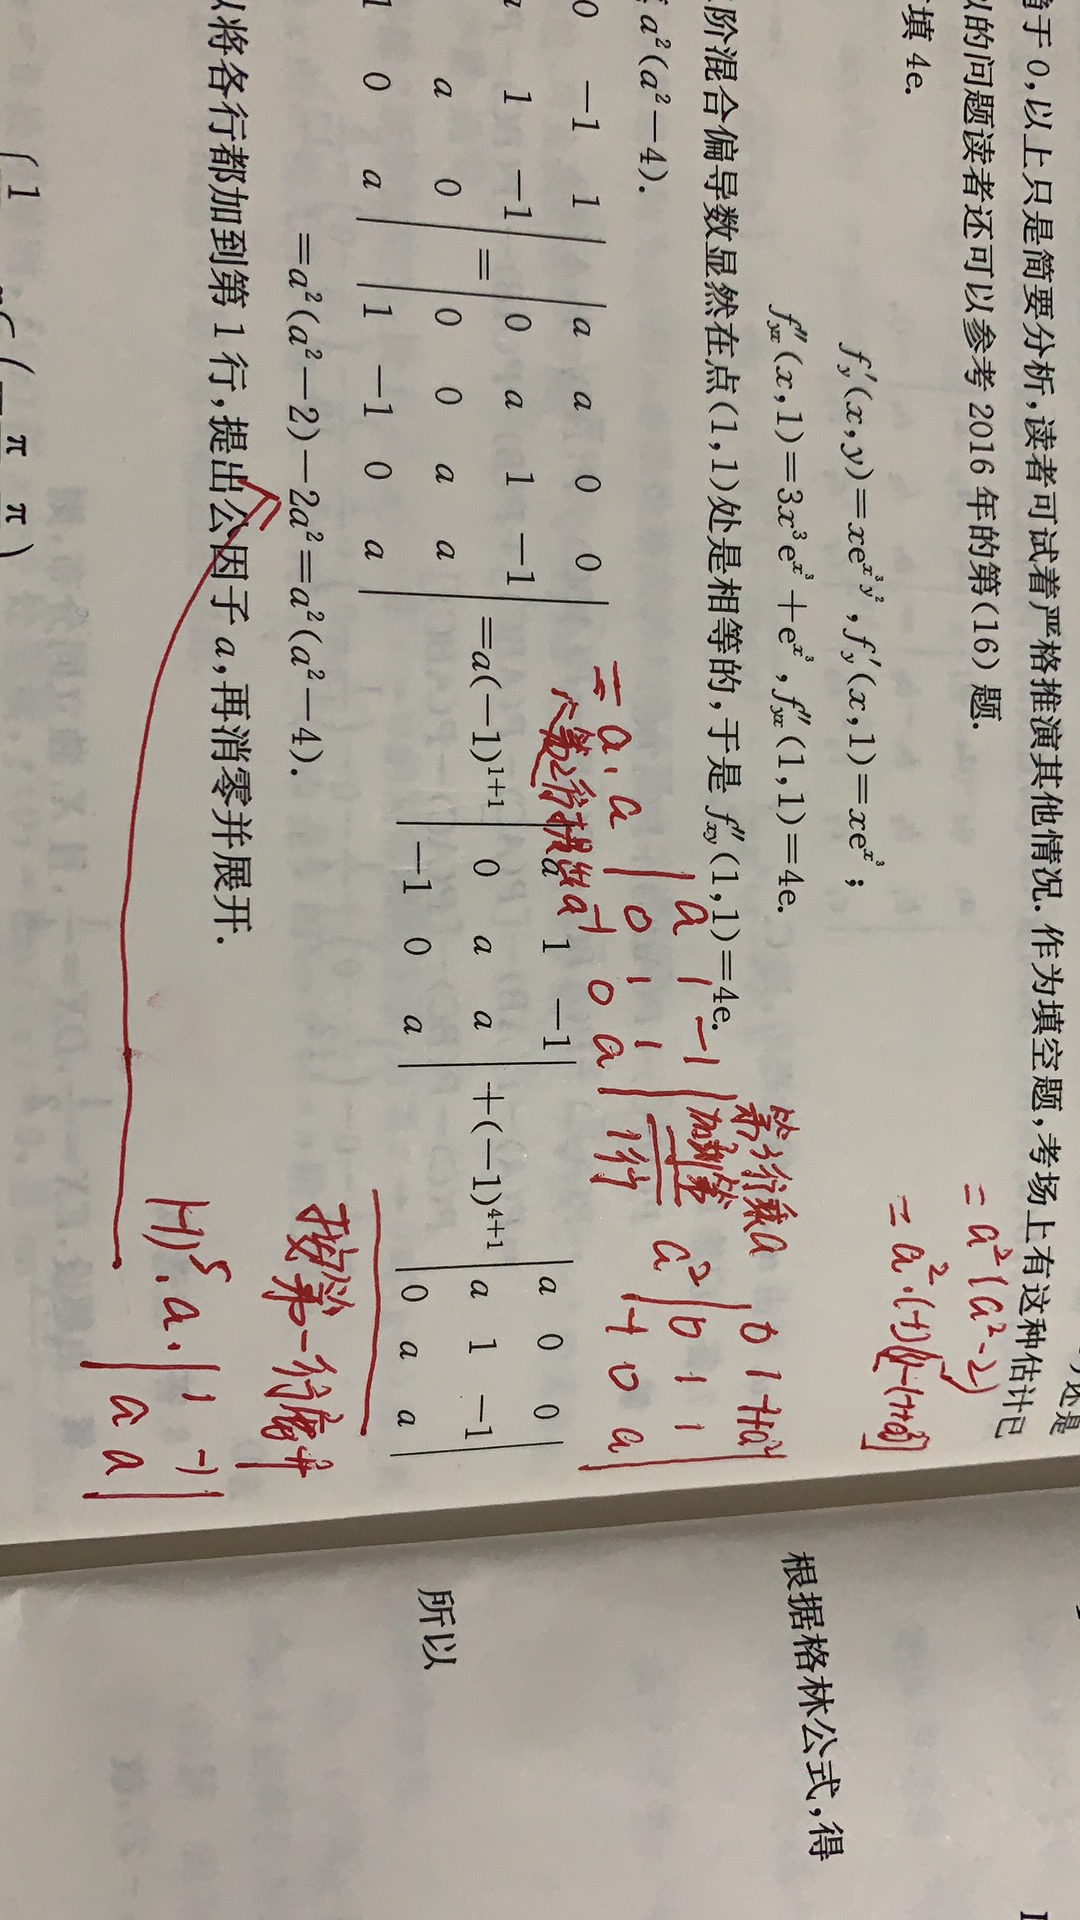 等于 0，以上只是简要分析，读者可试着严格推演其他情况．作为填空题，考场上有这种估计已
的问题读者还可以参考 2016 年的第(16)题．
填 4e．
f′y(x,y)=xe^{x³y²}, f′y(x,1)=xe^{x³};
f″yx(x,1)=3x³e^{x³}+e^{x³}, f″yx(1,1)=4e.
阶混合偏导数显然在点(1,1)处是相等的，于是 f″xy(1,1)=4e.
a²(a²−4).
0 −1 1 | | a a 0 0 | | a 1 −1 | | a 0 0 |
1 −1 | = | 0 a 1 −1 | =a(−1)^{1+1} | 0 a a | +(−1)^{4+1} | a 1 −1 |
a 0 | | 0 0 a a | | −1 0 a | | 0 a a |
1 0 a | | 1 −1 0 a |
=a²(a²−2)−2a²=a²(a²−4).
将各行都加到第 1 行，提出公因子 a，再消零并展开．
= a²(a²−2)
= a·a | a 1 −1 |
| 0 1 1 |
−1 0 a |
第2行提出a
第2行乘a
加到第
1行
a² | 0 1 1 |
−1 0 a |
按第一行展开
(−1)⁵·a· | 1 −1 |
| a a |
根据格林公式，得
所以